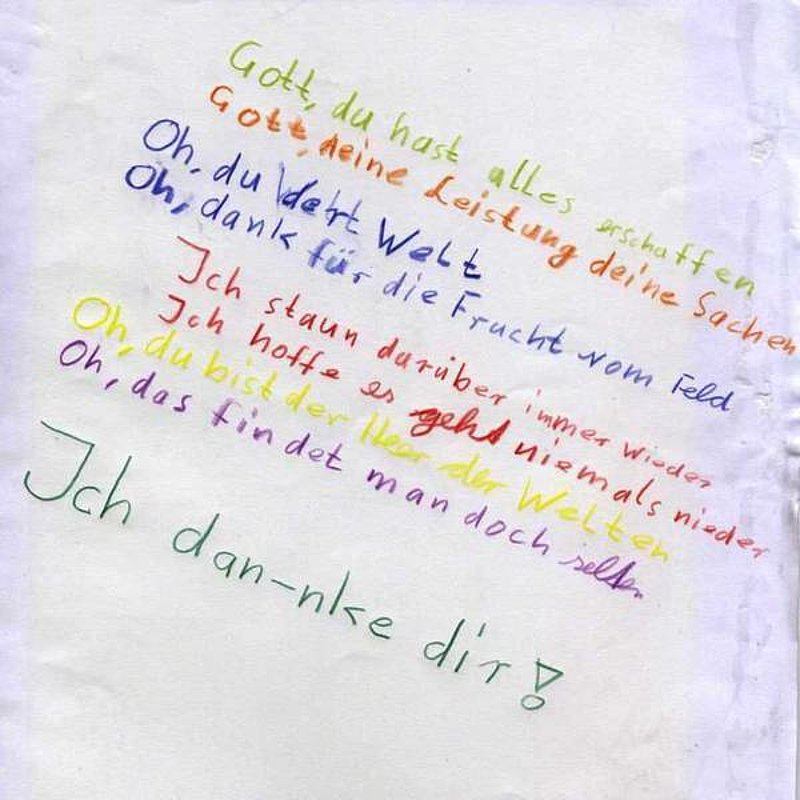 Gott, du hast alles erschaffen
Gott, deine Leistung deine Sachen
Oh, du Welt
Oh, dank für die Frucht vom Feld
Ich staun darüber immer wieder
Ich hoffe es geht niemals nieder
Oh, du bist der Herr der Welten
Oh, das findet man doch selten
Ich dan-nke dir!